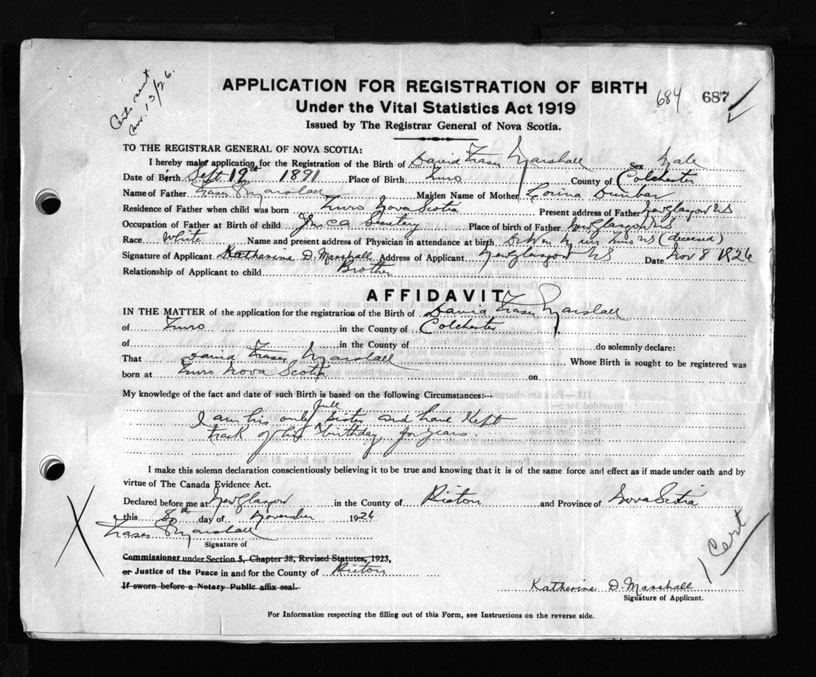 Cert. sent
Nov. 13/26.
APPLICATION FOR REGISTRATION OF BIRTH
684 687
Under the Vital Statistics Act 1919
Issued by The Registrar General of Nova Scotia.
TO THE REGISTRAR GENERAL OF NOVA SCOTIA:
I hereby make application for the Registration of the Birth of David Fraser Marshall Sex Male
Date of Birth Sept. 19th 1891 Place of Birth Truro County of Colchester
Name of Father Fraser Marshall Maiden Name of Mother Dunbar
Residence of Father when child was born Truro Nova Scotia Present address of Father New Glasgow NS
Occupation of Father at Birth of child Y.M.C.A. Secretary Place of birth of Father New Glasgow NS
Race White Name and present address of Physician in attendance at birth Dr Truro NS (deceased)
Signature of Applicant Katherine D. Marshall Address of Applicant New Glasgow NS Date Nov 8 1926
Relationship of Applicant to child Brother
AFFIDAVIT
IN THE MATTER of the application for the registration of the Birth of David Fraser Marshall
of Truro in the County of Colchester
of in the County of do solemnly declare:
That David Fraser Marshall Whose Birth is sought to be registered was
born at Truro Nova Scotia on
My knowledge of the fact and date of such Birth is based on the following Circumstances:--
I am his only full sister and have kept
track of his birthday for years.
I make this solemn declaration conscientiously believing it to be true and knowing that it is of the same force and effect as if made under oath and by
virtue of The Canada Evidence Act.
Declared before me at New Glasgow in the County of Pictou and Province of Nova Scotia
this 8th day of November 1926
Fraser Marshall
Signature of
Commissioner under Section 5, Chapter 38, Revised Statutes, 1923,
or Justice of the Peace in and for the County of Pictou
If sworn before a Notary Public affix seal.
1 Cert
Katherine D. Marshall
Signature of Applicant.
For Information respecting the filling out of this Form, see Instructions on the reverse side.